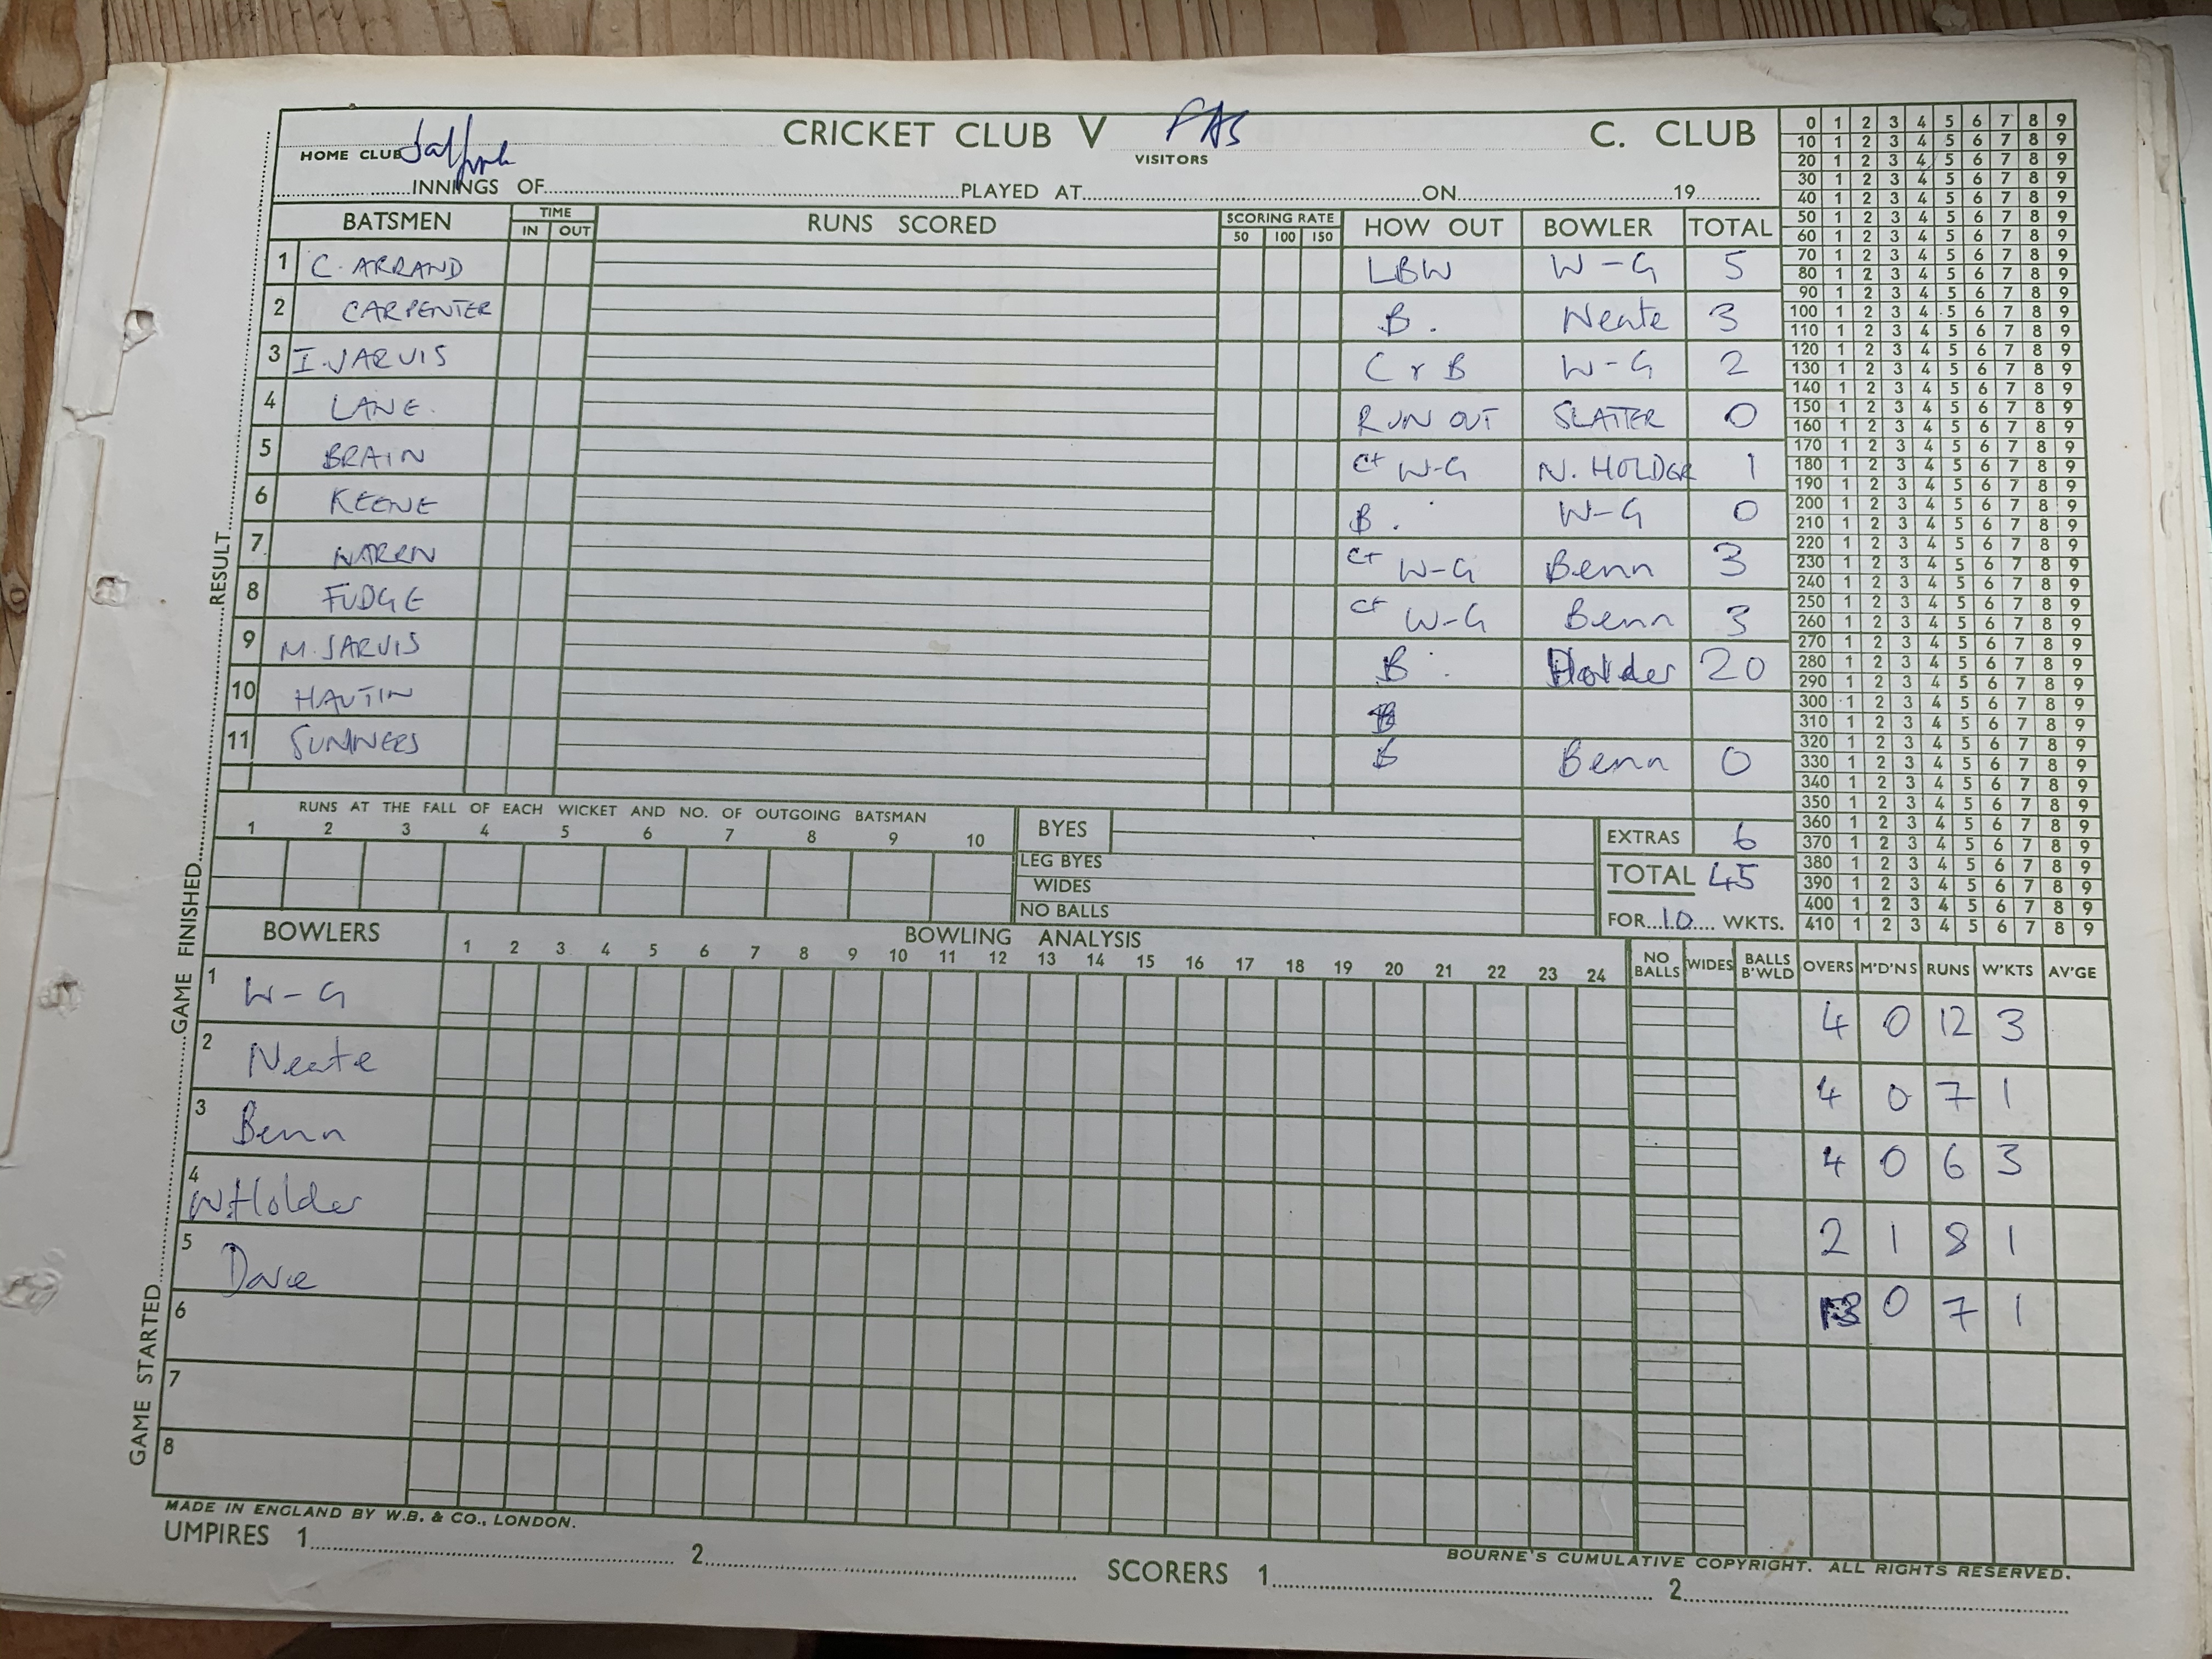 CRICKET CLUB V PAS C. CLUB
HOME CLUB VISITORS
INNINGS OF PLAYED AT ON 19
BATSMEN TIME RUNS SCORED SCORING RATE HOW OUT BOWLER TOTAL
IN OUT 50 100 150
1 C. ARRAND LBW W-G 5
2 CARPENTER B. Neate 3
3 I. JARVIS C + B W-G 2
4 LANE. RUN OUT SLATTER 0
5 BRAIN Ct W-G N. HOLDER 1
6 KEENE B. W-G 0
7 Ct W-G Benn 3
8 FUDGE Ct W-G Benn 3
9 M. JARVIS B. Holder 20
10 HAUTIN B
11 SUMMERS B Benn 0
RUNS AT THE FALL OF EACH WICKET AND NO. OF OUTGOING BATSMAN
1 2 3 4 5 6 7 8 9 10
BYES
LEG BYES
WIDES
NO BALLS
EXTRAS 6
TOTAL 45
FOR 10 WKTS.
0 1 2 3 4 5 6 7 8 9
10 1 2 3 4 5 6 7 8 9
20 1 2 3 4 5 6 7 8 9
30 1 2 3 4 5 6 7 8 9
40 1 2 3 4 5 6 7 8 9
50 1 2 3 4 5 6 7 8 9
60 1 2 3 4 5 6 7 8 9
70 1 2 3 4 5 6 7 8 9
80 1 2 3 4 5 6 7 8 9
90 1 2 3 4 5 6 7 8 9
100 1 2 3 4 5 6 7 8 9
110 1 2 3 4 5 6 7 8 9
120 1 2 3 4 5 6 7 8 9
130 1 2 3 4 5 6 7 8 9
140 1 2 3 4 5 6 7 8 9
150 1 2 3 4 5 6 7 8 9
160 1 2 3 4 5 6 7 8 9
170 1 2 3 4 5 6 7 8 9
180 1 2 3 4 5 6 7 8 9
190 1 2 3 4 5 6 7 8 9
200 1 2 3 4 5 6 7 8 9
210 1 2 3 4 5 6 7 8 9
220 1 2 3 4 5 6 7 8 9
230 1 2 3 4 5 6 7 8 9
240 1 2 3 4 5 6 7 8 9
250 1 2 3 4 5 6 7 8 9
260 1 2 3 4 5 6 7 8 9
270 1 2 3 4 5 6 7 8 9
280 1 2 3 4 5 6 7 8 9
290 1 2 3 4 5 6 7 8 9
300 1 2 3 4 5 6 7 8 9
310 1 2 3 4 5 6 7 8 9
320 1 2 3 4 5 6 7 8 9
330 1 2 3 4 5 6 7 8 9
340 1 2 3 4 5 6 7 8 9
350 1 2 3 4 5 6 7 8 9
360 1 2 3 4 5 6 7 8 9
370 1 2 3 4 5 6 7 8 9
380 1 2 3 4 5 6 7 8 9
390 1 2 3 4 5 6 7 8 9
400 1 2 3 4 5 6 7 8 9
410 1 2 3 4 5 6 7 8 9
BOWLERS BOWLING ANALYSIS NO BALLS WIDES BALLS B'WLD OVERS M'D'NS RUNS W'KTS AV'GE
1 2 3 4 5 6 7 8 9 10 11 12 13 14 15 16 17 18 19 20 21 22 23 24
1 W-G 4 0 12 3
2 Neate 4 0 7 1
3 Benn 4 0 6 3
4 N. Holder 2 1 8 1
5 Dave 3 0 7 1
6
7
8
GAME STARTED GAME FINISHED RESULT
MADE IN ENGLAND BY W.B. & CO., LONDON.
BOURNE'S CUMULATIVE COPYRIGHT. ALL RIGHTS RESERVED.
UMPIRES 1 2 SCORERS 1 2